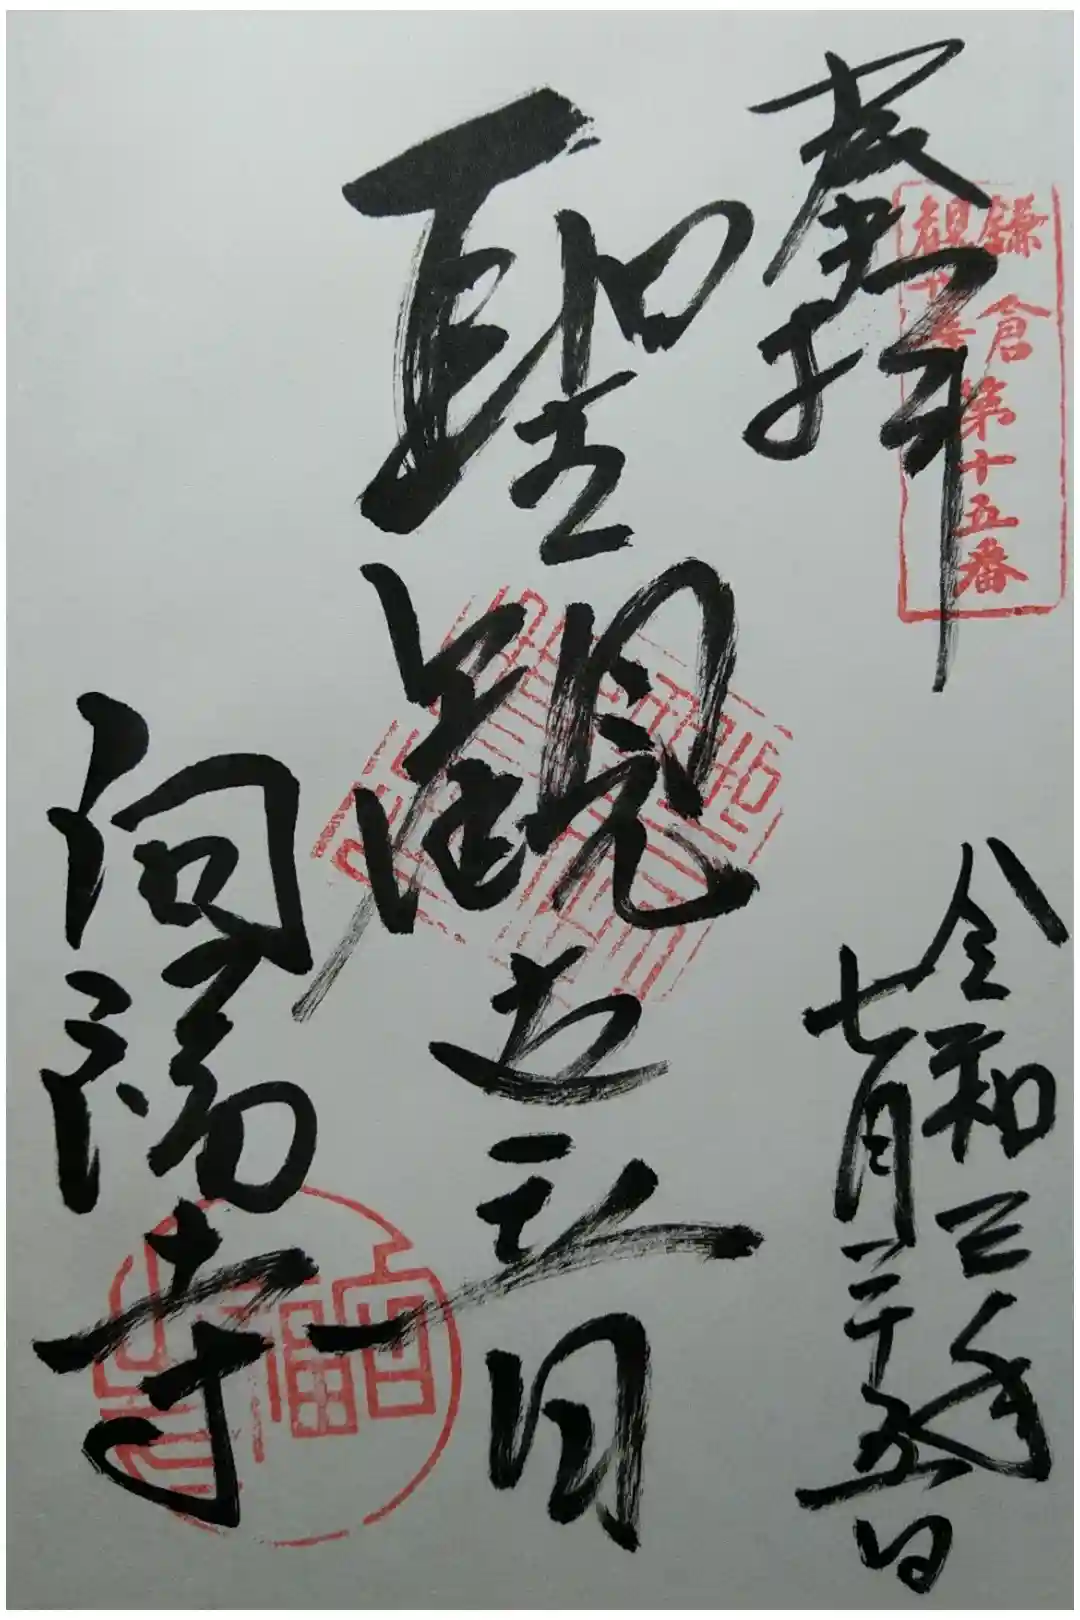 奉拝
鎌倉
観世音
第十五番
令和三年
七月二十五日
聖観世音
向福寺